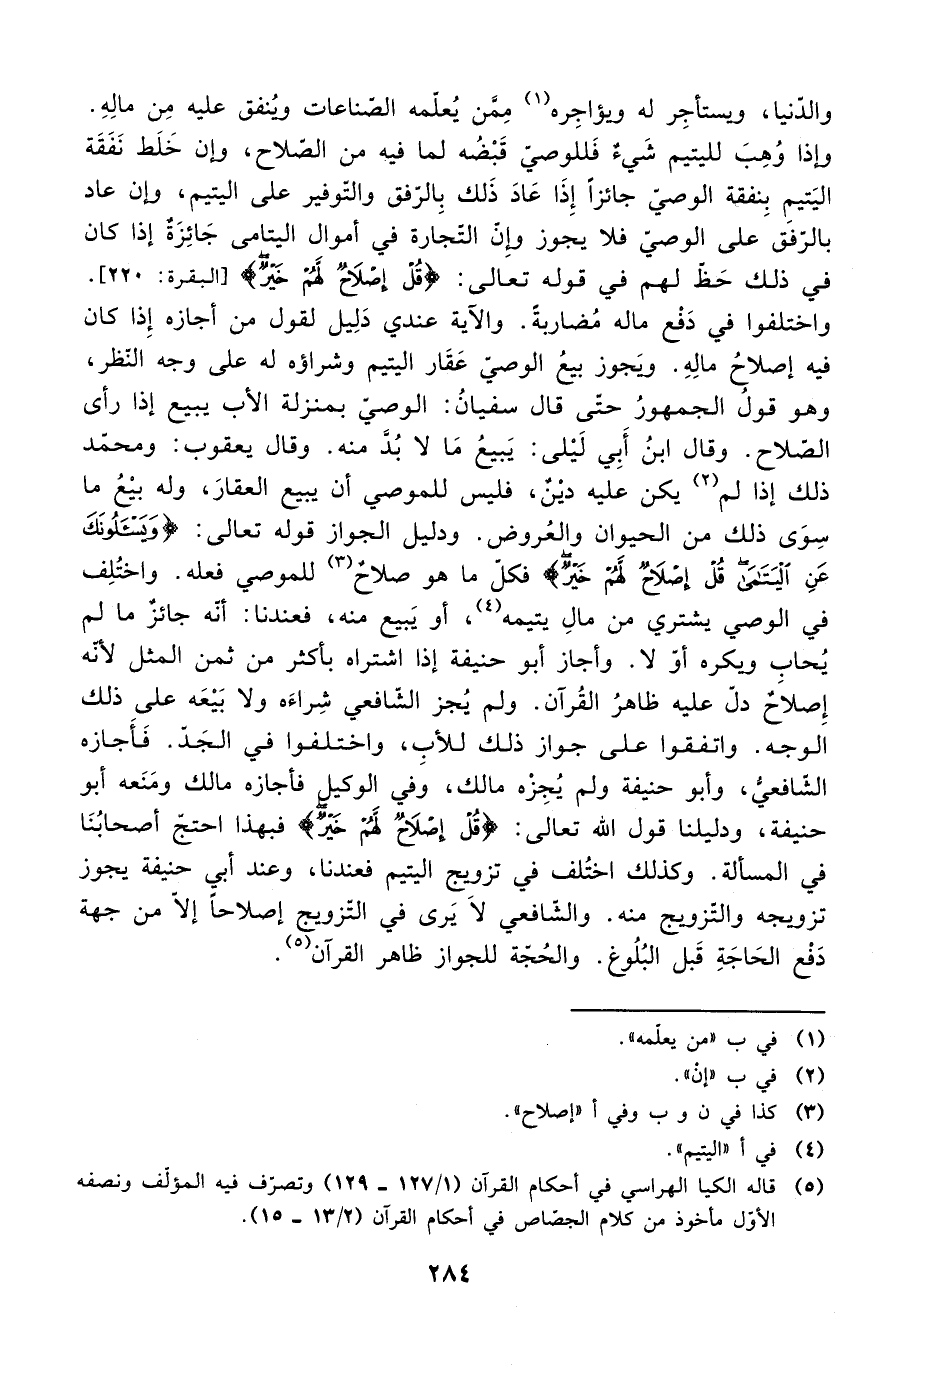 والدّنيا، ويستأجِر له ويؤاجِره(١) مِمَّن يُعلّمه الصّناعات ويُنفق عليه مِن مالِهِ.
وإذا وُهِبَ لليتيم شَيءٌ فَللوصيّ قَبْضُه لما فيه من الصّلاح، وإن خَلَط نَفَقَة
اليَتيمِ بِنفقة الوصيّ جائزاً إِذَا عَادَ ذَلك بِالرّفق والتّوفير على اليتيم، وإن عاد
بالرّفق على الوصيّ فلا يجوز وإنّ التّجارة في أموال اليتامى جَائِزَةٌ إذا كان
في ذلك حَظّ لهم في قوله تعالى: ﴿قُلْ إِصْلَاحٌ لَّهُمْ خَيْرٌۖ﴾ [البقرة: ٢٢٠].
واختلفوا في دَفْع ماله مُضاربةً. والآية عندي دَلِيل لقول من أجازه إِذَا كان
فيه إصلاحُ مالِهِ. ويَجوز بيعُ الوصيّ عَقَار اليتيم وشراؤه له على وجه النّظر،
وهو قولُ الجمهورُ حتّى قال سفيانُ: الوصيّ بمنزلة الأب يبيع إذا رأى
الصّلاح. وقال ابنُ أَبِي لَيْلى: يَبيعُ مَا لا بُدَّ منه. وقال يعقوب: ومحمّد
ذلك إذا لم(٢) يكن عليه ديْنٌ، فليس للموصي أن يبيع العقارَ، وله بيْعُ ما
سِوَى ذلك من الحيوان والعُروض. ودليل الجواز قوله تعالى: ﴿وَيَسْـَٔلُونَكَ
عَنِ ٱلْيَتَـٰمَىٰۖ قُلْ إِصْلَاحٌ لَّهُمْ خَيْرٌۖ﴾ فكلّ ما هو صلاحٌ(٣) للموصي فعله. واختُلِف
في الوصي يشتري من مالِ يتيمه(٤)، أو يَبيع منه، فعندنا: أنّه جائزٌ ما لم
يُحابِ ويكره أوّ لا. وأجاز أبو حنيفة إذا اشتراه بأكثر من ثمن المثل لأنّه
إِصلاحٌ دلّ عليه ظاهرُ القُرآن. ولم يُجز الشّافعي شِراءَه ولا بَيْعَه على ذلك
الوجه. واتفقوا على جواز ذلك للأبِ، واختلفوا في الجَدّ. فَأَجازه
الشّافعيُّ، وأبو حنيفة ولم يُجِزْه مالك، وفي الوكيلِ فأجازه مالك ومَنَعه أبو
حنيفة، ودليلنا قول الله تعالى: ﴿قُلْ إِصْلَاحٌ لَّهُمْ خَيْرٌۖ﴾ فبهذا احتجّ أصحابُنَا
في المسألة. وكذلك اختُلف في تزويج اليتيم فعندنا، وعند أبي حنيفة يجوز
تزويجه والتّزويج منه. والشّافعي لاَ يَرى في التّزويج إصلاحاً إلاّ من جهة
دَفْع الحَاجَةِ قَبل البُلُوغِ. والحُجّة للجواز ظاهر القرآن(٥).
(١) في ب «من يعلّمه».
(٢) في ب «إنْ».
(٣) كذا في ن و ب وفي أ «إصلاح».
(٤) في أ «اليتيم».
(٥) قاله الكيا الهراسي في أحكام القرآن (١/ ١٢٧ ـ ١٢٩) وتصرّف فيه المؤلّف ونصفه
الأوّل مأخوذ من كلام الجصّاص في أحكام القرآن (٢/ ١٣ ـ ١٥).
٢٨٤